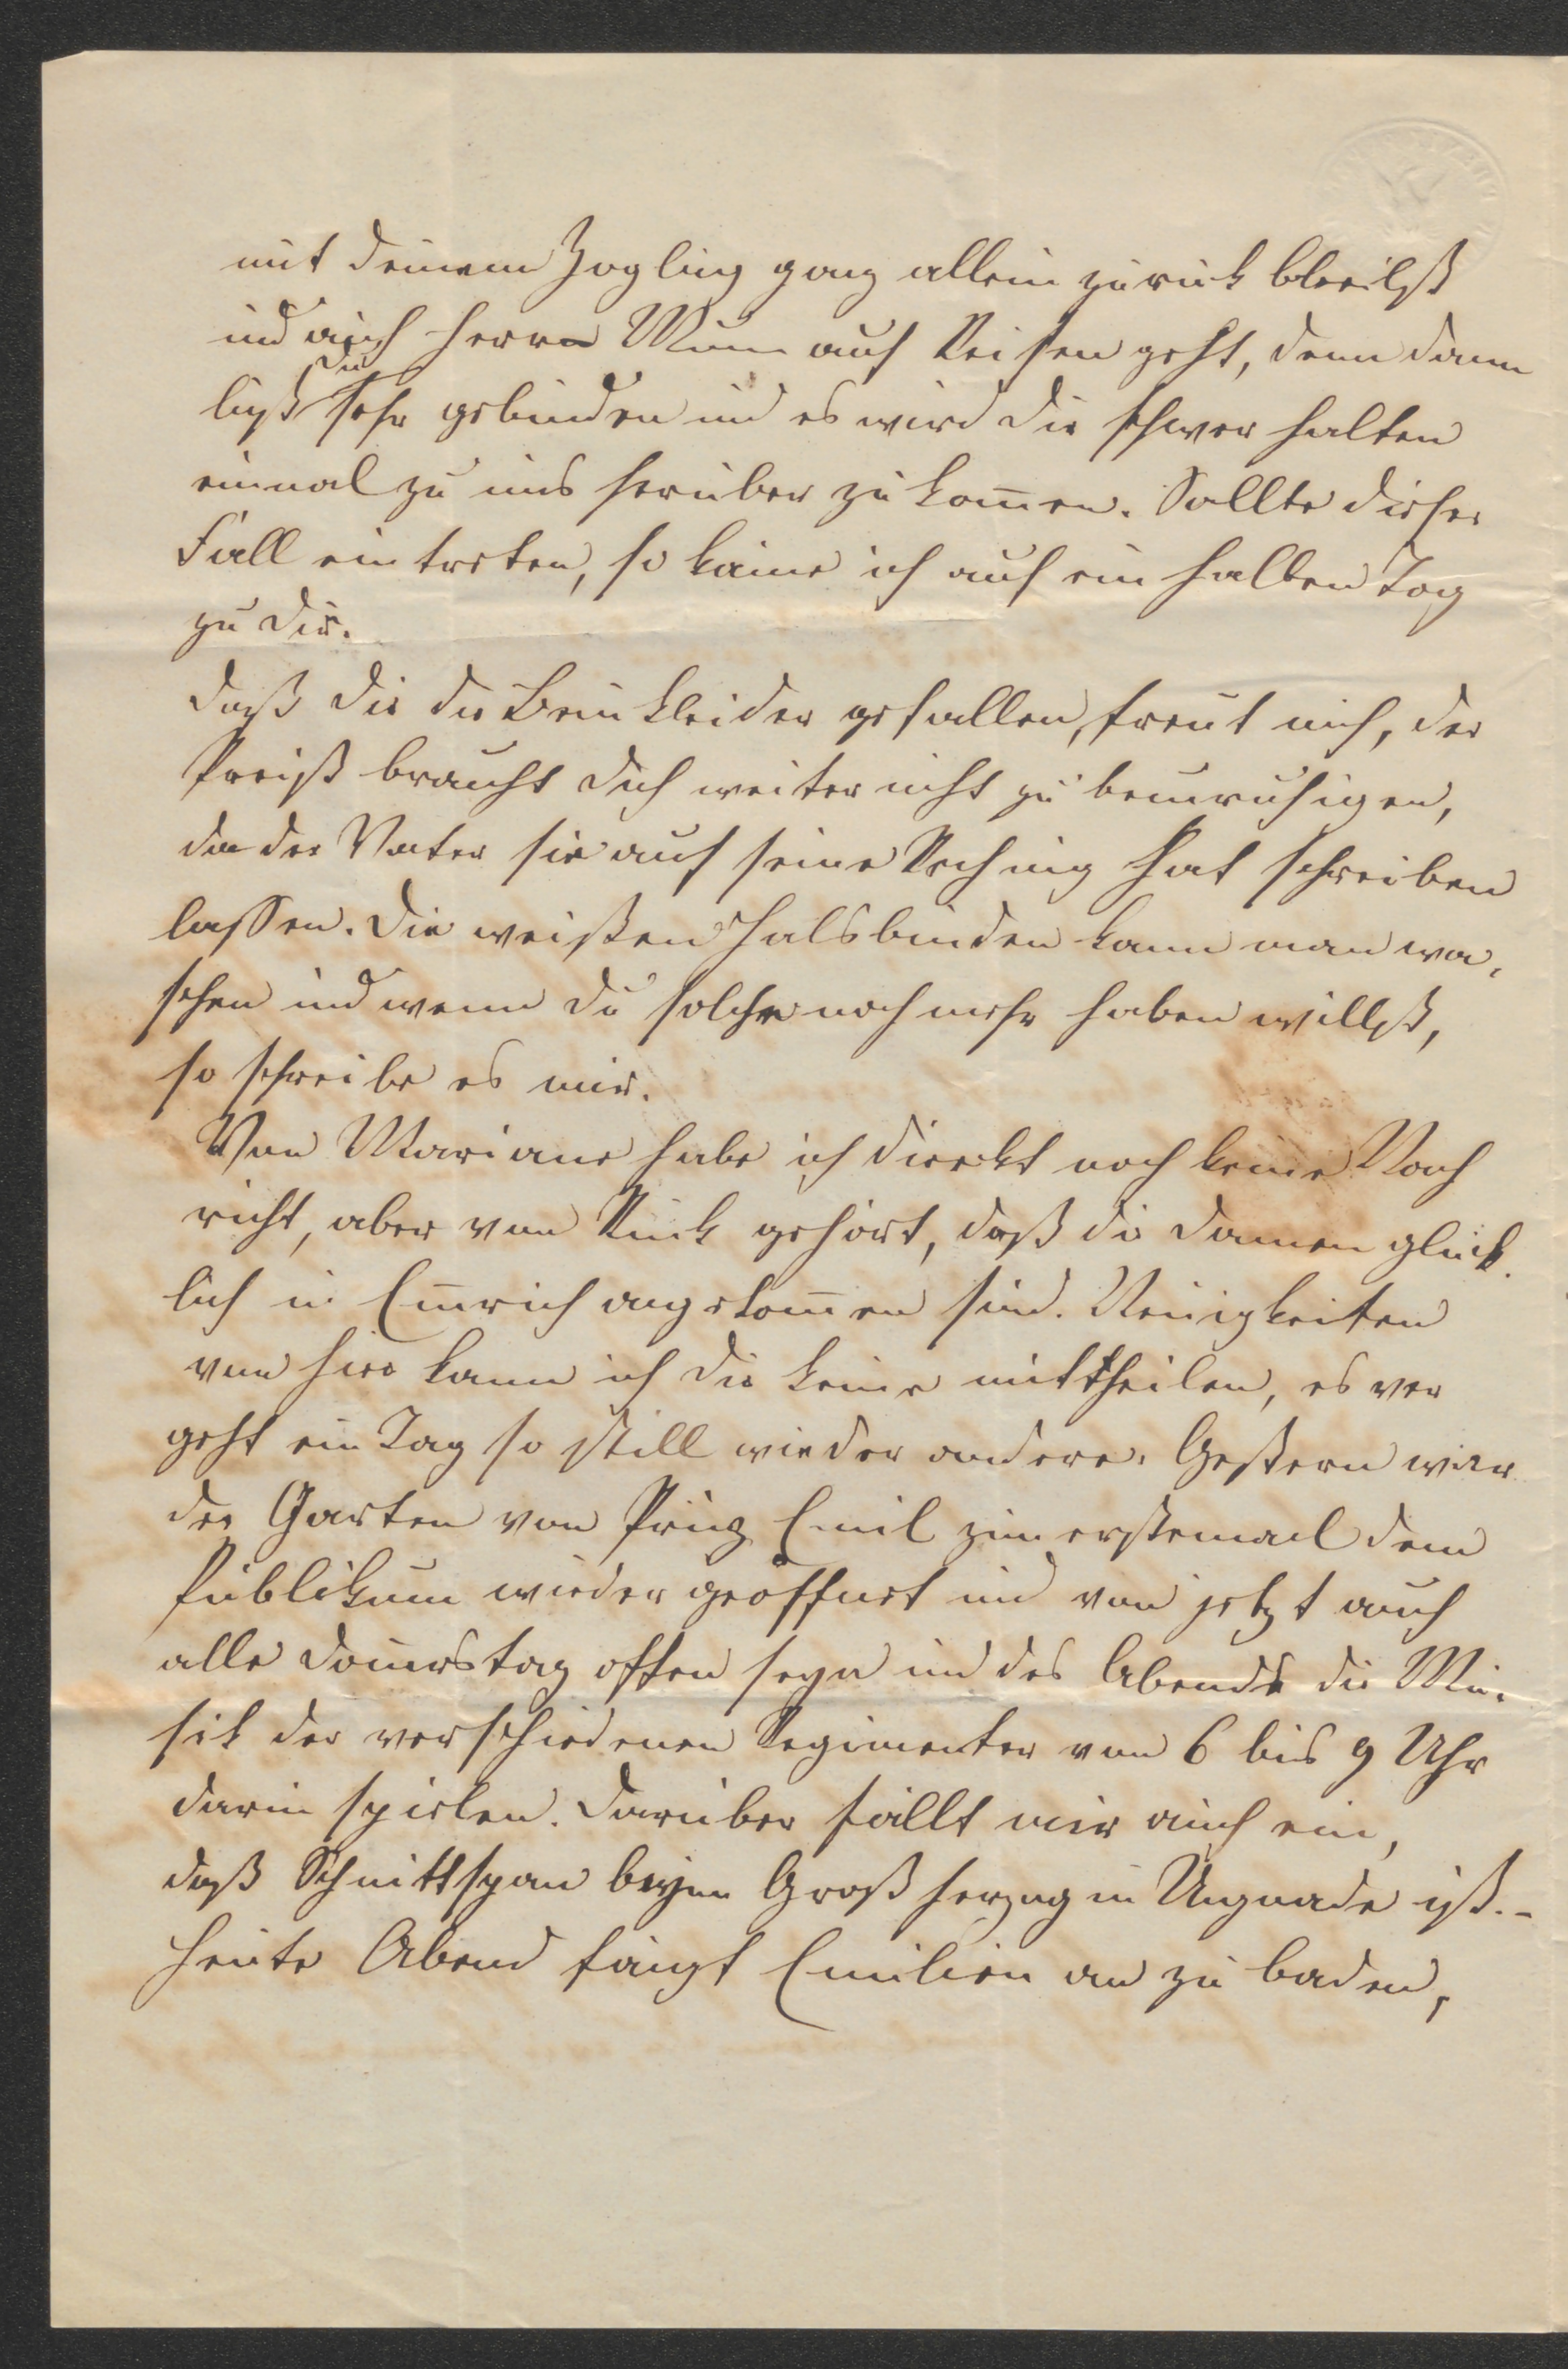 mit deinem Zögling ganz allein zurück bleibst
und auch Herrn Mumm auf Reisen geht, denn dann
bist du sehr gebunden und es wird dir schwer halten
einmal zu uns herüber zu kom̄en. Sollte dieser
Fall eintreten, so käme ich auf ein halben Tag
zu dir.
Daß dir die Beinkleider gefallen, freut mich, der
Preiß braucht dich weiter nicht zu beunruhigen,
da der Vater sie auf seine Rechnung hat schreiben
lassen. Die weißen Halsbinden kann man wa-
schen und wenn du solche noch mehr haben willst,
so schreibe es mir.
Von Mariane habe ich direkt noch keine Nach
richt, aber von Rück gehört, daß die Damen glück-
lich in Em̄rich angekom̄en sind. Neuigkeiten
von hier kann ich dir keine mittheilen, es ver
geht ein Tag so still wie der andere. Gestern war
der Garten von Prinz Emil zum erstemal dem
Publikum wieder geöffnet und von jetzt auch
alle Donnerstag offen seyn und des Abends die Mu-
sik der verschiedenen Regimenter von 6 bis 9 Uhr
darin spielen. Darüber fällt mir auch ein,
daß Schnittspan beym Großherzog in Ungnade ist. -
Heute Abend fängt Emilien an zu baden,